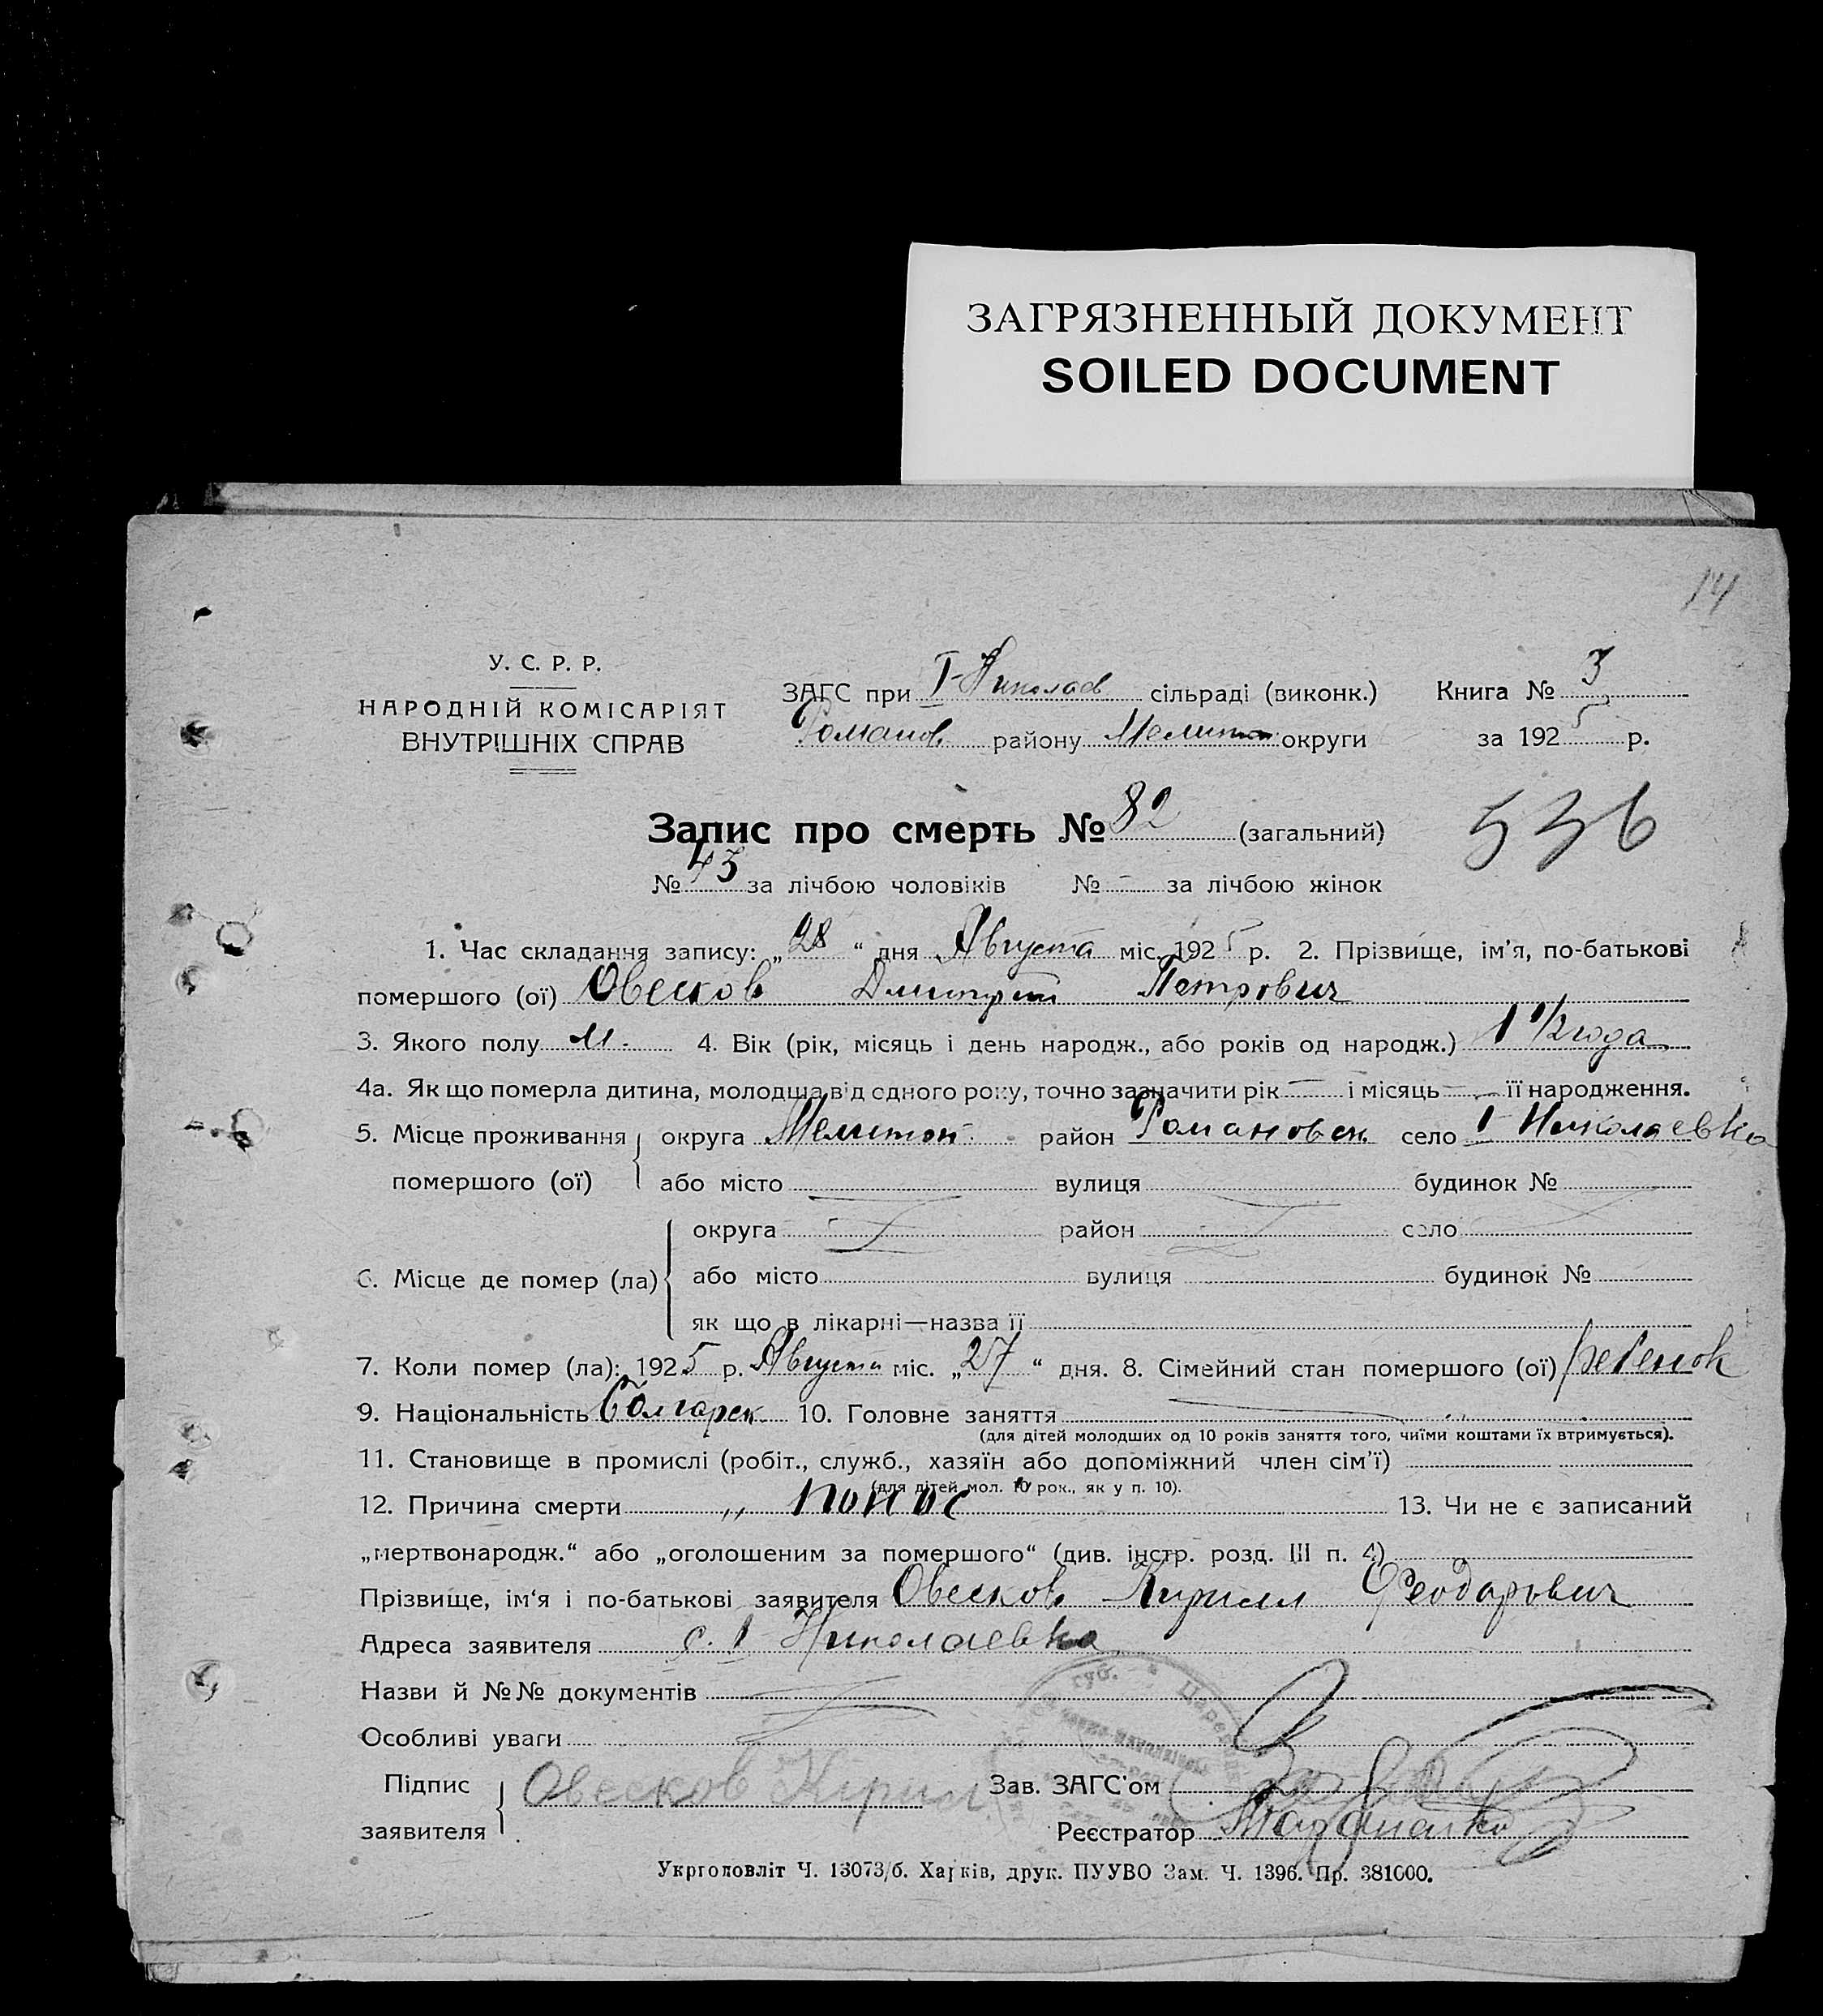 ЗАГРЯЗНЕННЫЙ ДОКУМЕНТ
SOILED DOCUMENT
14
У. С. Р. Р.
НАРОДНІЙ КОМІСАРІЯТ
ВНУТРІШНІХ СПРАВ
ЗАГС при I-Николаев сільраді (виконк.) Книга № 3
Романов. району Мелитоп округи за 1925 р.
Запис про смерть № 82 (загальний) 536
№ 43 за лічбою чоловіків № - за лічбою жінок
1. Час складання запису: „28“ дня Августа міс. 1925 р. 2. Прізвище, ім'я, по-батькові
помершого (ої) Овесков Дмитрий Петрович
3. Якого полу м. 4. Вік (рік, місяць і день народж., або років од народж.) 1 1/2 года
4а. Як що померла дитина, молодша від одного року, точно зазначити рік — і місяць — її народження.
5. Місце проживання округа Мелитоп. район Романовск. село I Николаевка
помершого (ої) або місто вулиця будинок №
округа район село
6. Місце де помер (ла) або місто вулиця будинок №
як що в лікарні—назва її
7. Коли помер (ла): 1925 р. Августа міс. „27“ дня. 8. Сімейний стан помершого (ої) ребенок
9. Національність Болгарск. 10. Головне заняття
(для дітей молодших од 10 років заняття того, чиїми коштами їх втримується).
11. Становище в промислі (робіт., служб., хазяїн або допоміжний член сім'ї)
(для дітей мол. 10 рок., як у п. 10).
12. Причина смерти „ понос 13. Чи не є записаний
„мертвонародж.“ або „оголошеним за помершого“ (див. інстр. розд. III п. 4)
Прізвище, ім'я і по-батькові заявителя Овесков Кирилл Феодорович
Адреса заявителя с. I Николаевка
Назви й №№ документів
Особливі уваги
Підпис заявителя Овесков Кирил
Зав. ЗАГС'ом
Реєстратор
Укрголовліт Ч. 13073/б. Харків, друк. ПУУВО Зам. Ч. 1396. Пр. 381000.